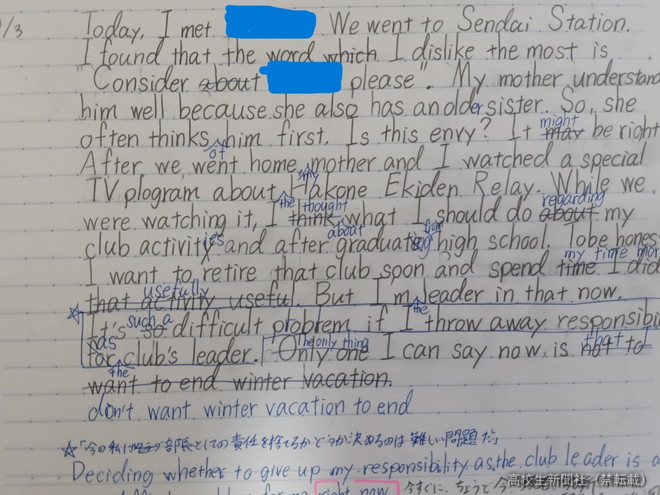 1/3
Today, I met We went to Sendai Station.
I found that the word which I dislike the most is
"Consider about please". My mother understand
him well because she also has an older sister. So, she
often thinks of him first. Is this envy? It may might be right
After we went home, my mother and I watched a special
TV plogram about the Hakone Ekiden Relay. While we
were watching it, I think thought what I should do about regarding my
club activities and about after graduating from high school. To be hones
I want to retire that club soon and spend time my time I did
that activity useful usefully. But I'm the leader in that now.
☆ It's so such a difficult problem if I throw away responsibi
for as the club's leader. Only one The only thing I can say now is not to that
want to end winter vacation.
don't want winter vacation to end
☆「今の私に部長としての責任を捨てるかどうか決めるのは難しい問題だ」
Deciding whether to give up my responsibility as the club leader is a
right now 今すぐに、ちょうど今
高校生新聞社 (禁転載)